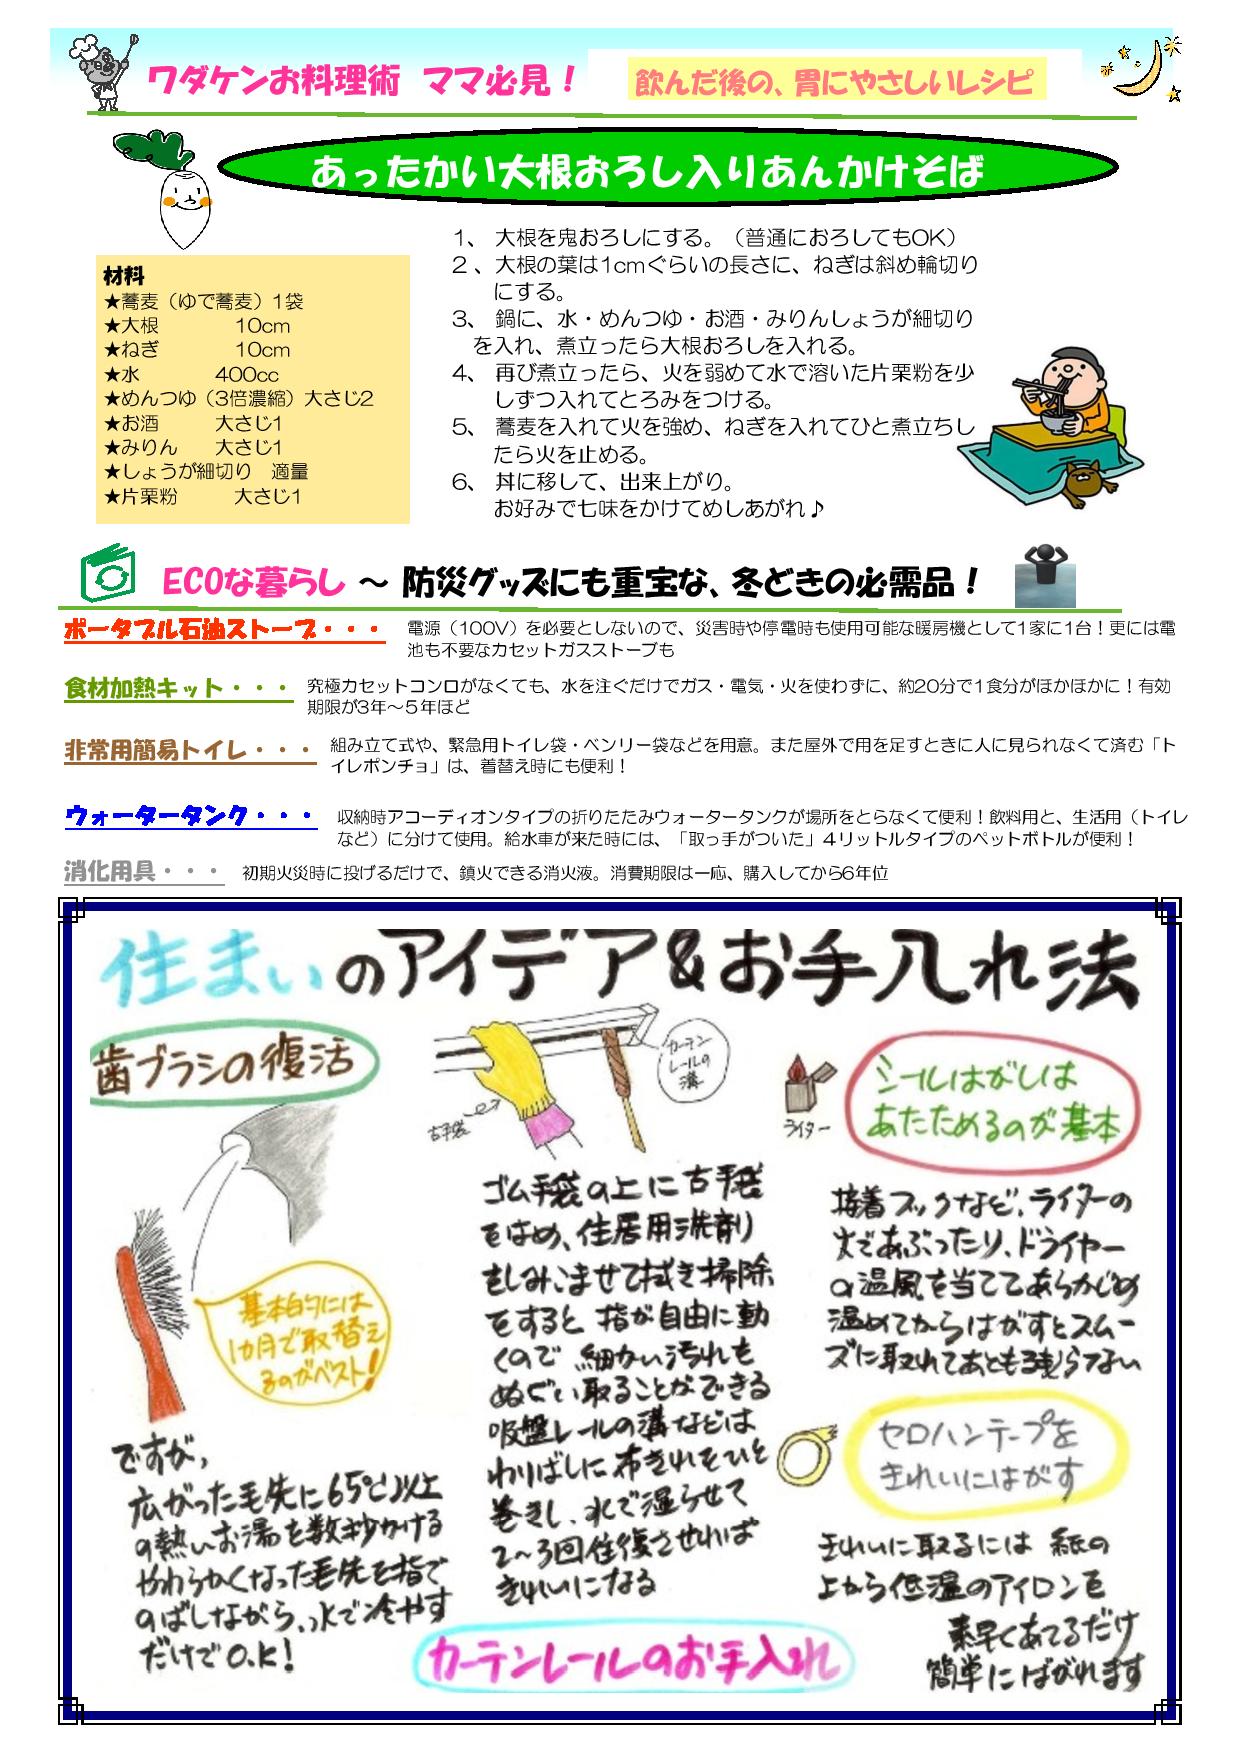 ワダケンお料理術 ママ必見！
飲んだ後の、胃にやさしいレシピ
あったかい大根おろし入りあんかけそば
材料
★蕎麦（ゆで蕎麦）1袋
★大根 10cm
★ねぎ 10cm
★水 400cc
★めんつゆ（3倍濃縮）大さじ2
★お酒 大さじ1
★みりん 大さじ1
★しょうが細切り 適量
★片栗粉 大さじ1
1、 大根を鬼おろしにする。（普通におろしてもOK）
2、大根の葉は1cmぐらいの長さに、ねぎは斜め輪切り
にする。
3、 鍋に、水・めんつゆ・お酒・みりんしょうが細切り
を入れ、煮立ったら大根おろしを入れる。
4、 再び煮立ったら、火を弱めて水で溶いた片栗粉を少
しずつ入れてとろみをつける。
5、 蕎麦を入れて火を強め、ねぎを入れてひと煮立ちし
たら火を止める。
6、 丼に移して、出来上がり。
お好みで七味をかけてめしあがれ♪
ECOな暮らし ～ 防災グッズにも重宝な、冬どきの必需品！
ポータブル石油ストーブ・・・ 電源（100V）を必要としないので、災害時や停電時も使用可能な暖房機として1家に1台！更には電
池も不要なカセットガスストーブも
食材加熱キット・・・ 究極カセットコンロがなくても、水を注ぐだけでガス・電気・火を使わずに、約20分で1食分がほかほかに！有効
期限が3年～5年ほど
非常用簡易トイレ・・・ 組み立て式や、緊急用トイレ袋・ベンリー袋などを用意。また屋外で用を足すときに人に見られなくて済む「ト
イレポンチョ」は、着替え時にも便利！
ウォータータンク・・・ 収納時アコーディオンタイプの折りたたみウォータータンクが場所をとらなくて便利！飲料用と、生活用（トイレ
など）に分けて使用。給水車が来た時には、「取っ手がついた」４リットルタイプのペットボトルが便利！
消化用具・・・ 初期火災時に投げるだけで、鎮火できる消火液。消費期限は一応、購入してから6年位
住まいのアイデア&お手入れ法
歯ブラシの復活
基本的には
1カ月で取替え
るのがベスト！
ですが,
広がった毛先に65℃以上
の熱いお湯を数秒かける
やわらかくなった毛先を指で
のばしながら、水で冷やす
だけでO.K!
カーテン
レールの
溝
古手袋
ゴム手袋の上に古手袋
をはめ、住居用洗剤
をしみこませて拭き掃除
をすると 指が自由に動
くので 細かい汚れも
ぬぐい取ることができる
吸盤レールの溝などは
わりばしに布きれをひと
巻きし、水で湿らせて
2～3回往復させれば
きれいになる
カーテンレールのお手入れ
ライター
シールはがしは
あたためるのが基本
接着フックなど、ライターの
火であぶったり、ドライヤー
の温風を当ててあらかじめ
温めてからはがすとスムー
ズに取れてあとも残らない
セロハンテープを
きれいにはがす
きれいに取るには 紙の
上から低温のアイロンを
素早くあてるだけ
簡単にはがれます